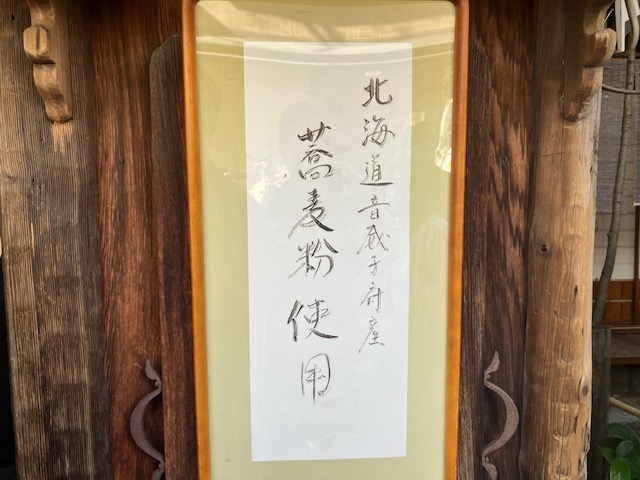 北海道音威子府産
蕎麦粉使用